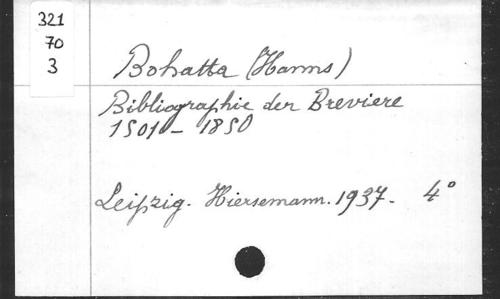 321
70
3
Bohatta (Hanns)
Bibliographie der Breviere
1501 - 1850
Leipzig. Hiersemann. 1937. 4°